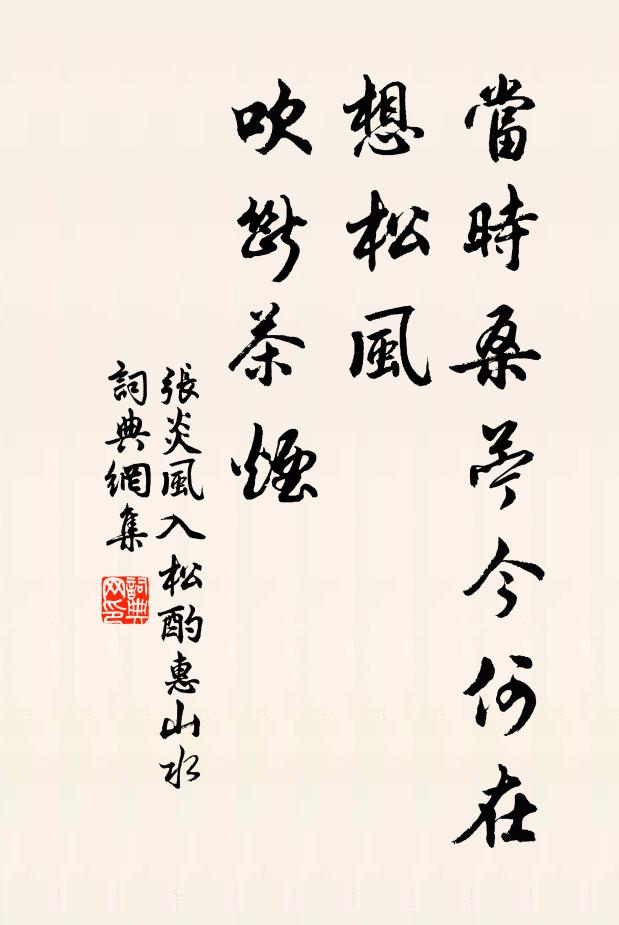 當時桑苧今何在
想松風
吹斷茶煙
張炎風入松酌惠山水
詞典網集
詞典
网印